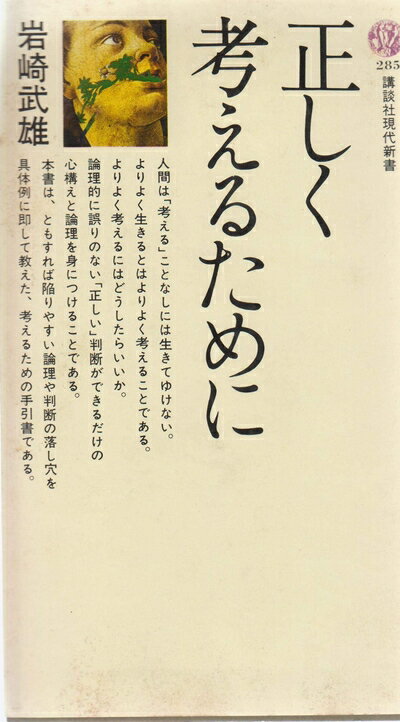 285
講談社現代新書
正しく
考えるために
岩崎武雄
人間は「考える」ことなしには生きてゆけない。
よりよく生きるとはよりよく考えることである。
よりよく考えるにはどうしたらいいか。
論理的に誤りのない「正しい」判断ができるだけの
心構えと論理を身につけることである。
本書は、ともすれば陥りやすい論理や判断の落し穴を
具体例に即して教えた、考えるための手引書である。